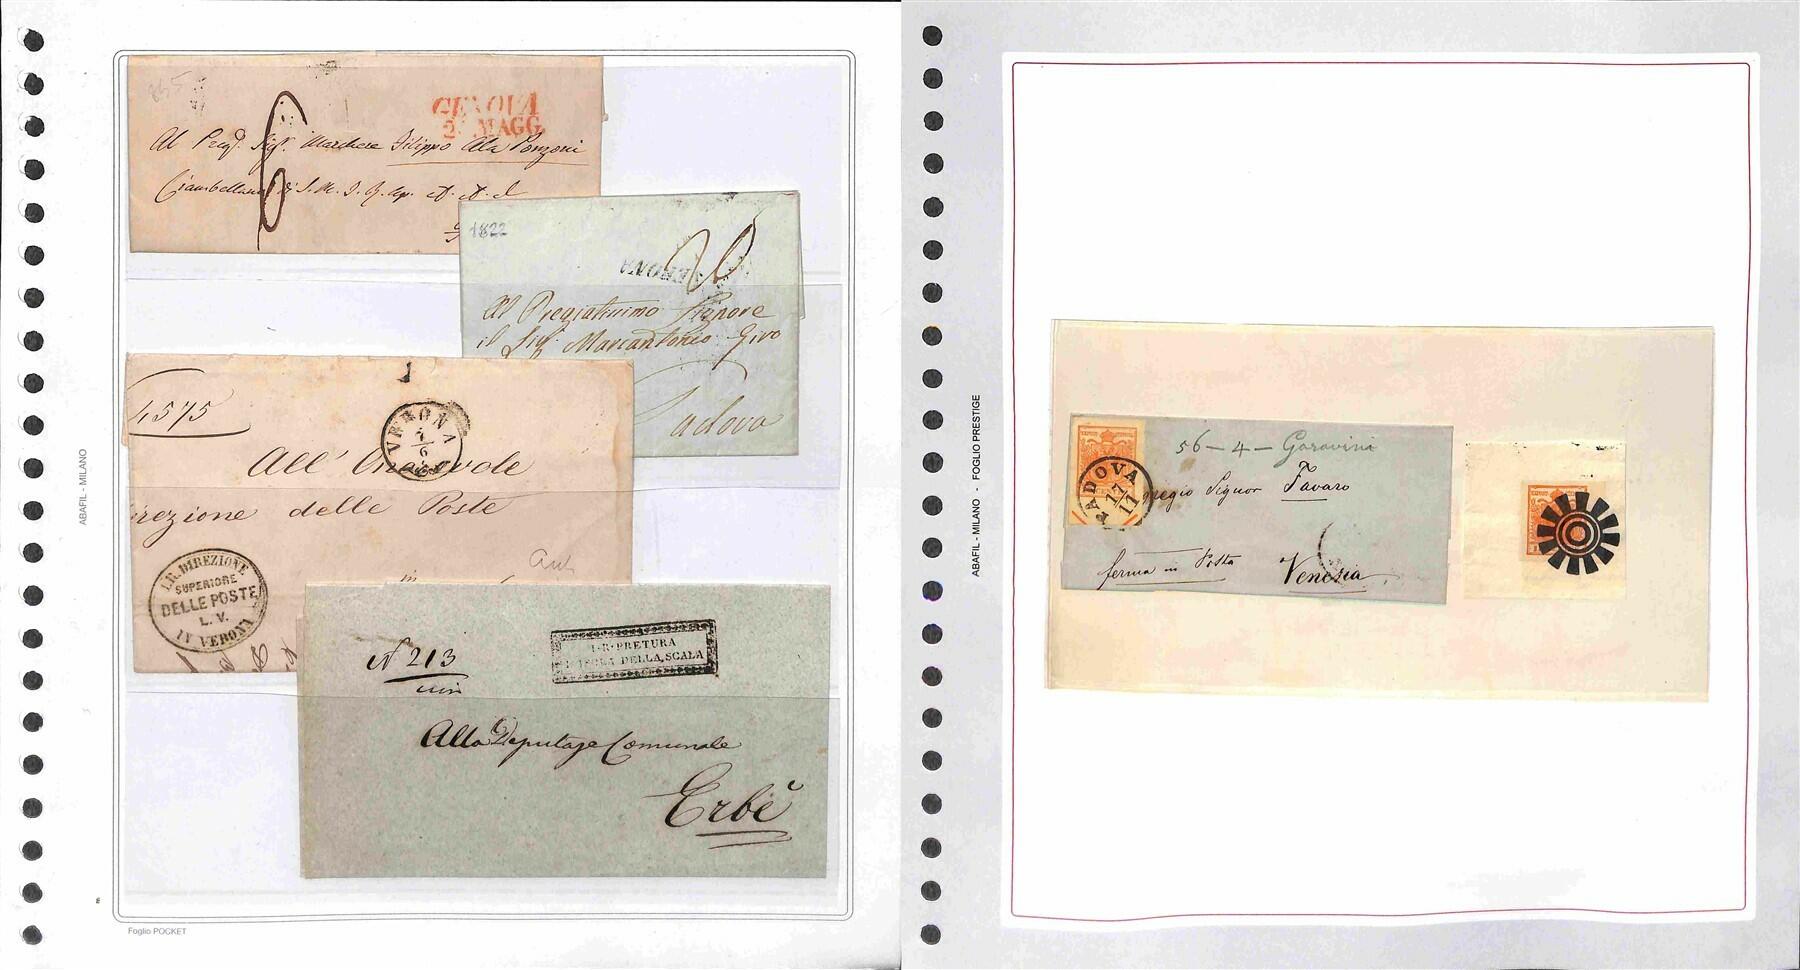 GENOVA
MAGG.
Al Preg. Sig. Marchese Filippo Ala Ponzoni
Ciambellano di S. M. I. R. Ap.
1822
VERONA
Al Pregiatissimo Signore
il Sig. Marcantonio Giro
Padova
4575
VERONA
7
6
All' Onorevole
Direzione delle Poste
in
I.R. DIREZIONE
SUPERIORE
DELLE POSTE
L. V.
IN VERONA
N 213
I. R. PRETURA
ISOLA DELLA SCALA
Alla Deputaze Comunale
Erbè
ABAFIL - MILANO
Foglio POCKET
ABAFIL - MILANO - FOGLIO PRESTIGE
56-4-Garavini
PADOVA
17
11
Signor Favaro
ferma in Posta
Venezia